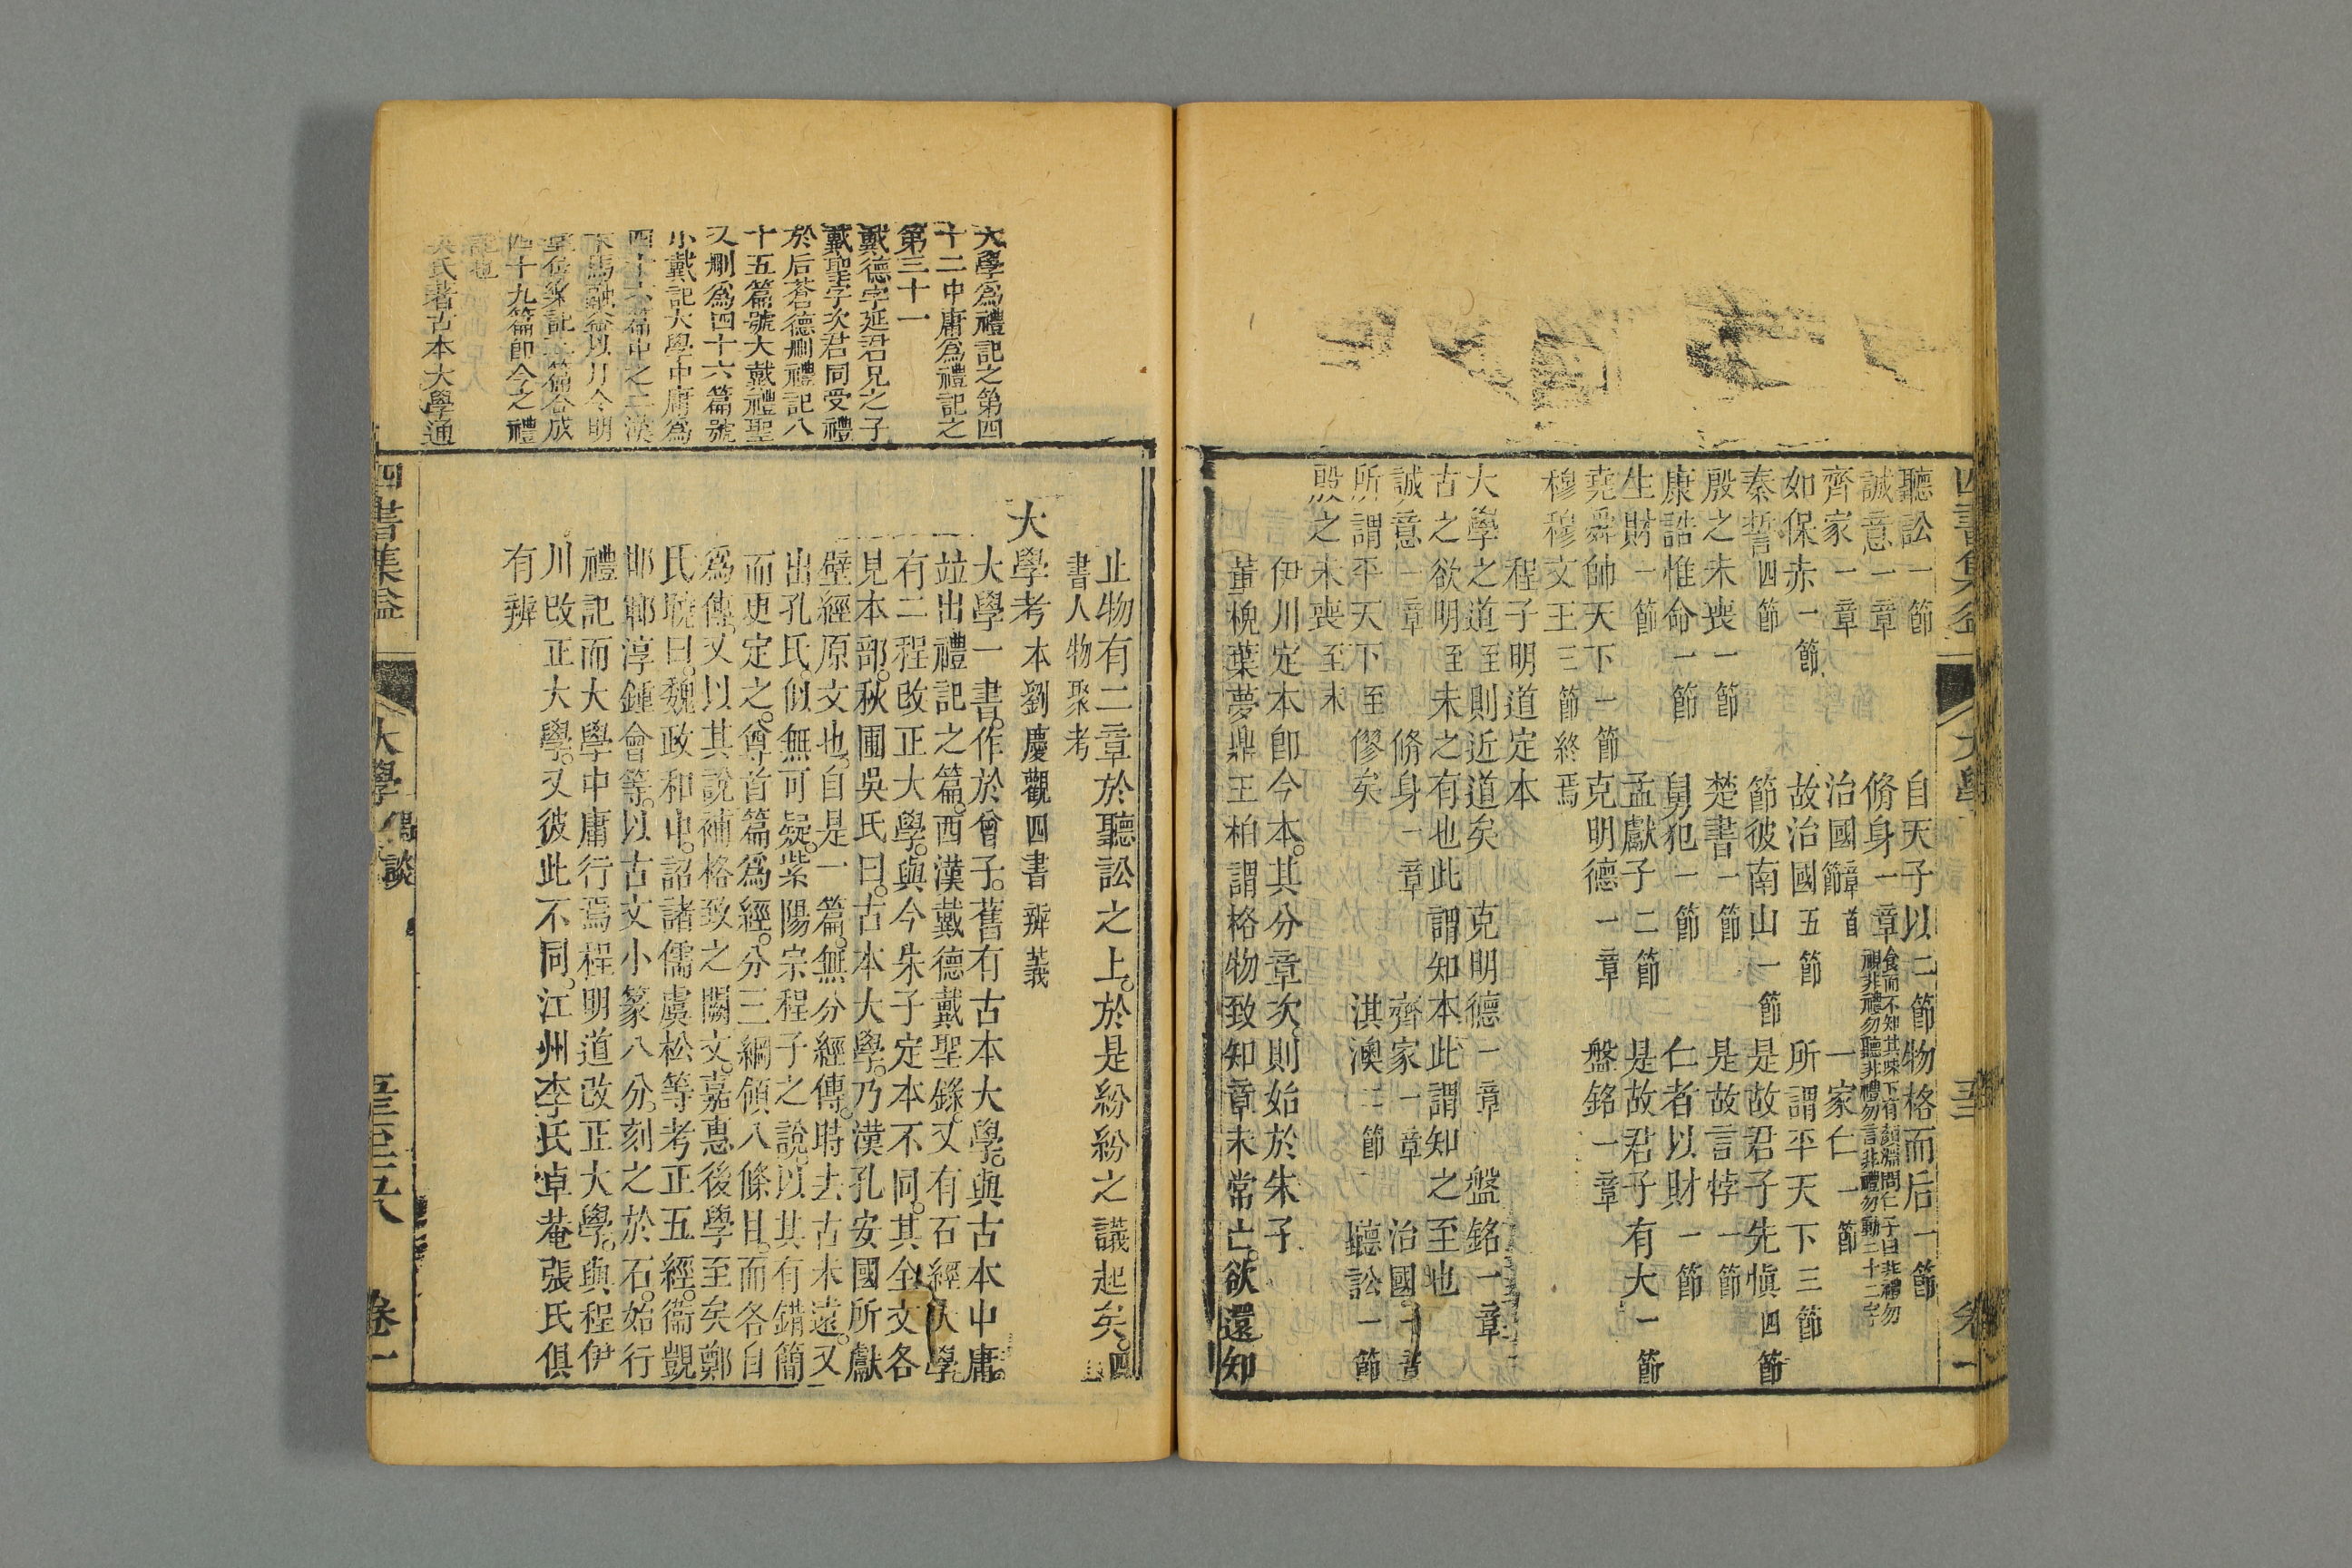 聽訟一節　自天子以二節物格而后一節
誠意一章　脩身一章食而不知其味下有顏淵問仁子曰非禮勿視非禮勿聽非禮勿言非禮勿動二十二字
齊家一章　治國章首節　一家仁一節
如保赤一節　故治國五節　所謂平天下三節
秦誓四節　節彼南山一節　是故君子先愼四節
殷之未喪一節　楚書一節　是故言悖一節
康誥惟命一節　舅犯一節　仁者以財一節
生財一節　孟獻子二節　是故君子有大一節
堯舜帥天下一節　克明德一章　盤銘一章
穆穆文王三節終焉
程子明道定本
大學之道至則近道矣　克明德一章　盤銘一章
古之欲明至未之有也此謂知本此謂知之至也
誠意一章　脩身一章　齊家一章　治國一章
所謂平天下至僇矣　淇澳二節　聽訟一節
殷之未喪至末
伊川定本卽今本。其分章次。則始於朱子
董槐葉夢鼎王柏謂格物致知章未常亡。欲還知
大學
卷一
止物有二章於聽訟之上。於是紛紛之議起矣。四
書人物聚考
大學考　本劉慶觀四書辨義
大學一書。作於曾子。舊有古本大學。與古本中庸。
竝出禮記之篇。西漢戴德戴聖錄。又有石經大學。
有二程改正大學。與今朱子定本不同。其全文各
見本部。秋圃吳氏曰。古本大學。乃漢孔安國所獻
壁經原文也。自是一篇。無分經傳。時去古未遠。又
出孔氏。似無可疑。紫陽宗程子之說。以其有錯簡
而更定之。尊首篇爲經。分三綱領八條目。而各自
爲傳。又以其說補格致之闕文。嘉惠後學至矣鄭
氏曉曰。魏政和中。詔諸儒虞松等考正五經。衞覬
邯鄲淳鍾會等。以古文小篆八分。刻之於石。始行
禮記而大學中庸行焉程明道改正大學。與程伊
川改正大學。又彼此不同。江州李氏卓菴張氏俱
有辨
大學爲禮記之第四
十二中庸爲禮記之
第三十一
戴德字延君兄之子
戴聖字次君同受禮
於后蒼德刪禮記八
十五篇號大戴禮聖
又刪爲四十六篇號
小戴記大學中庸爲
四十六篇中之二漢
末馬融益以月令明
堂位樂記三篇合成
四十九篇卽今之禮
記也
吳氏著古本大學通
四書集益
大學　偶談
卷一